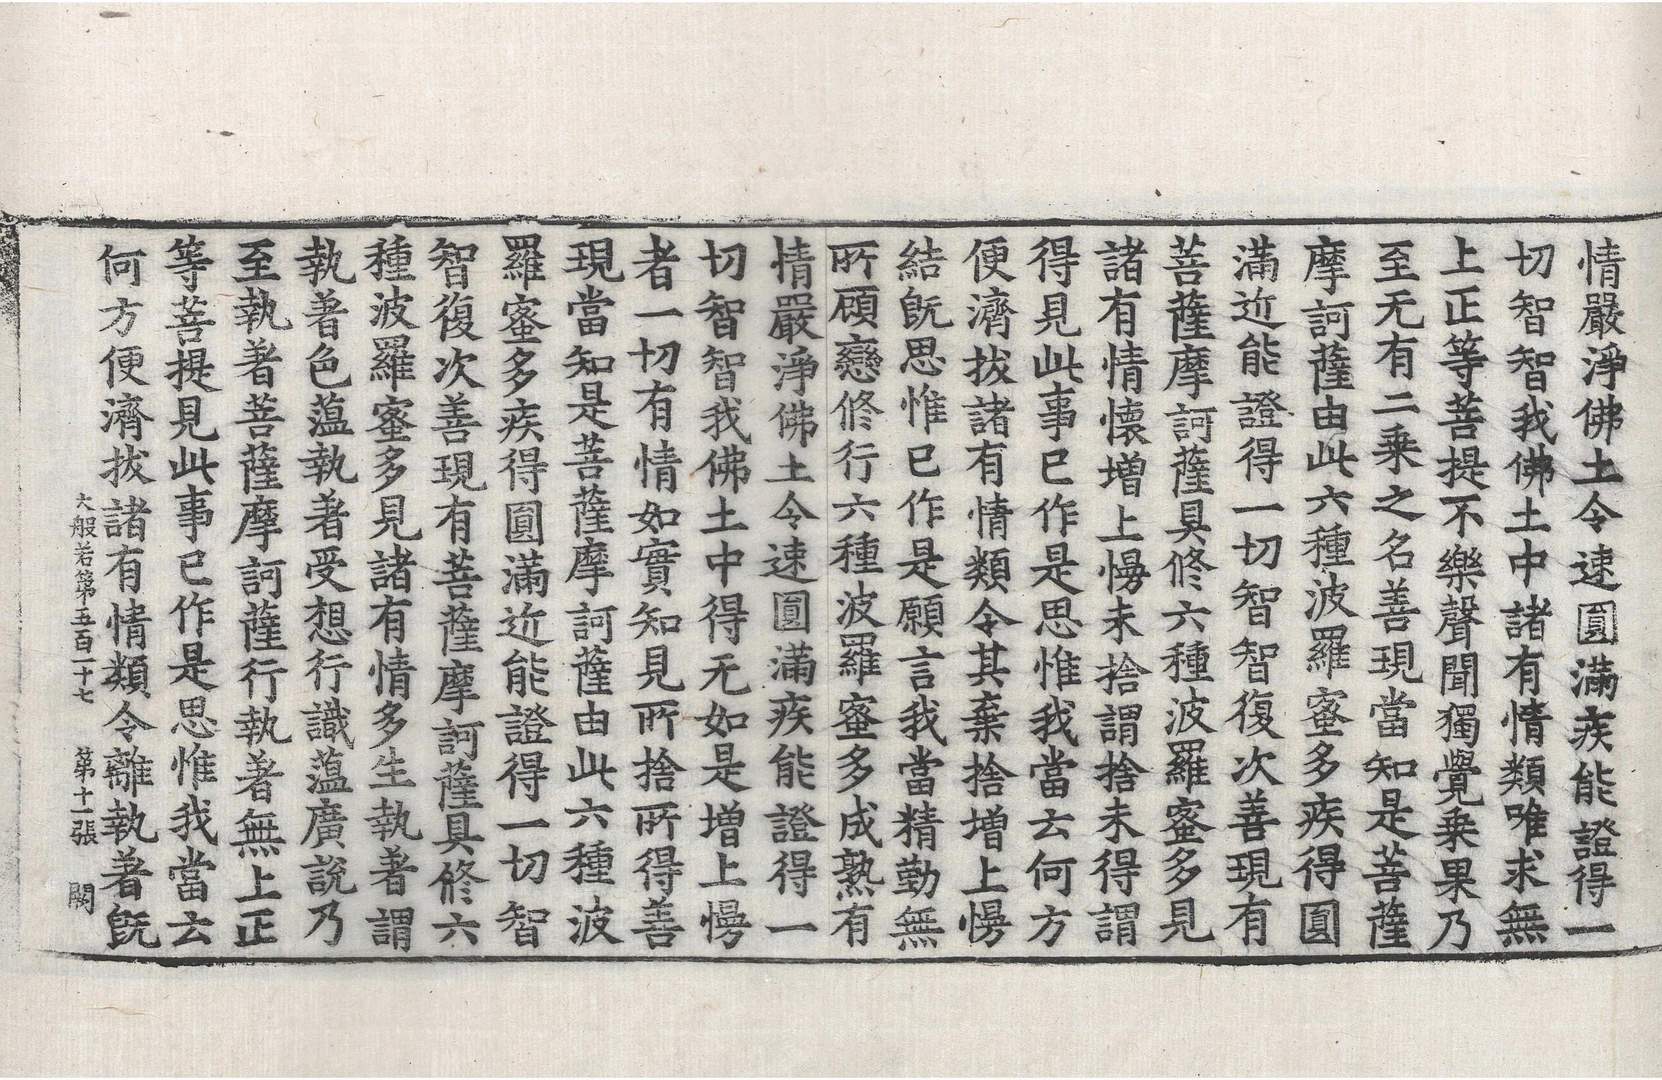 情嚴淨佛土令速圓滿疾能證得一
切智智我佛土中諸有情類唯求無
上正等菩提不樂聲聞獨覺乗果乃
至无有二乗之名善現當知是菩薩
摩訶薩由此六種波羅蜜多疾得圓
滿近能證得一切智智復次善現有
菩薩摩訶薩具修六種波羅蜜多見
諸有情懷增上慢未捨謂捨未得謂
得見此事已作是思惟我當云何方
便濟拔諸有情類令其棄捨增上慢
結既思惟已作是願言我當精勤無
所顧戀修行六種波羅蜜多成熟有
情嚴淨佛土令速圓滿疾能證得一
切智智我佛土中得无如是增上慢
者一切有情如實知見所捨所得善
現當知是菩薩摩訶薩由此六種波
羅蜜多疾得圓滿近能證得一切智
智復次善現有菩薩摩訶薩具修六
種波羅蜜多見諸有情多生執著謂
執著色蘊執著受想行識蘊廣說乃
至執著菩薩摩訶薩行執著無上正
等菩提見此事已作是思惟我當云
何方便濟拔諸有情類令離執著既
大般若第五百一十七 第十一張 闕